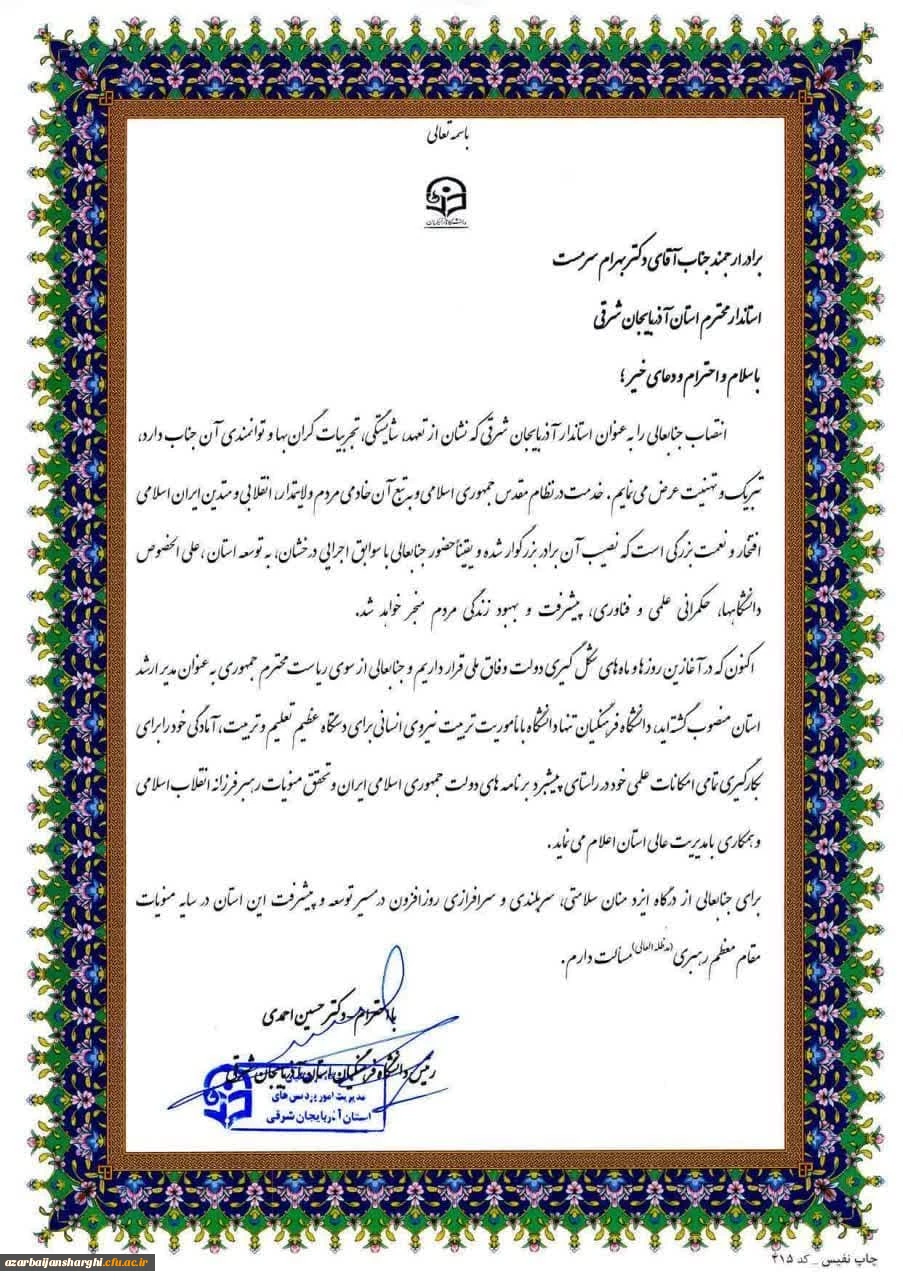 باسمه تعالی
دانشگاه فرهنگیان
برادر ارجمند جناب آقای دکتر بهرام سرمست
استاندار محترم استان آذربایجان شرقی
با سلام و احترام و دعای خیر؛
انتصاب جنابعالی را به عنوان استاندار آذربایجان شرقی که نشان از تعهد، شایستگی، تجربیات گران بها و توانمندی آن جناب دارد،
تبریک و تهنیت عرض می نمایم. خدمت در نظام مقدس جمهوری اسلامی و به تبع آن خادمی مردم ولایتمدار، انقلابی و متدین ایران اسلامی
افتخار و نعمت بزرگی است که نصیب آن برادر بزرگوار شده و یقینا حضور جنابعالی با سوابق اجرایی درخشان، به توسعه استان، علی الخصوص
دانشگاهها، حکمرانی علمی و فناوری، پیشرفت و بهبود زندگی مردم منجر خواهد شد.
اکنون که در آغازین روزها و ماه های شکل گیری دولت وفاق ملی قرار داریم و جنابعالی از سوی ریاست محترم جمهوری به عنوان مدیر ارشد
استان منصوب گشته اید، دانشگاه فرهنگیان تنها دانشگاه با مأموریت تربیت نیروی انسانی برای دستگاه عظیم تعلیم و تربیت، آمادگی خود را برای
بکارگیری تمامی امکانات علمی خود در راستای پیشبرد برنامه های دولت جمهوری اسلامی ایران و تحقق منویات رهبر فرزانه انقلاب اسلامی
و همکاری با مدیریت عالی استان اعلام می نماید.
برای جنابعالی از درگاه ایزد منان سلامتی، سربلندی و سرافرازی روزافزون در مسیر توسعه و پیشرفت این استان در سایه منویات
مقام معظم رهبری (مدظله العالی) مسألت دارم.
با احترام - دکتر حسین احمدی
رئیس دانشگاه فرهنگیان استان آذربایجان شرقی
مدیریت امور پردیس های
استان آذربایجان شرقی
چاپ نفیس _ کد ۴۱۵
azarbaijansharghi.cfu.ac.ir